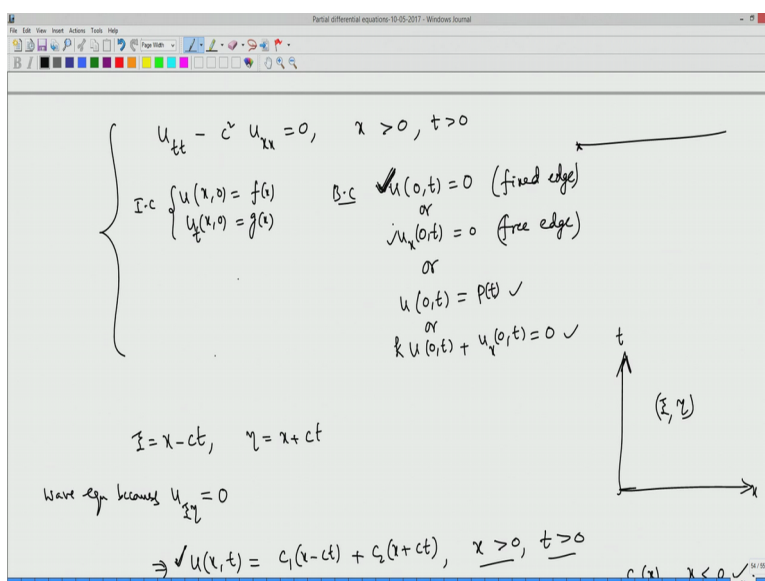 Partial differential equations-10-05-2017 - Windows Journal
File Edit View Insert Actions Tools Help
Page Width
B I
u_tt - c² u_xx = 0, x > 0, t > 0
I.C { u(x,0) = f(x)
u_t(x,0) = g(x)
B.C ✓u(0,t) = 0 (fixed edge)
or
u_x(0,t) = 0 (free edge)
or
u(0,t) = p(t) ✓
or
k u(0,t) + u_x(0,t) = 0 ✓
t
(ξ, η)
x
ξ = x-ct, η = x+ct
Wave eqn becomes u_ξη = 0
⇒ ✓u(x,t) = c₁(x-ct) + c₂(x+ct), x > 0, t > 0
x < 0 ✓
54 / 55